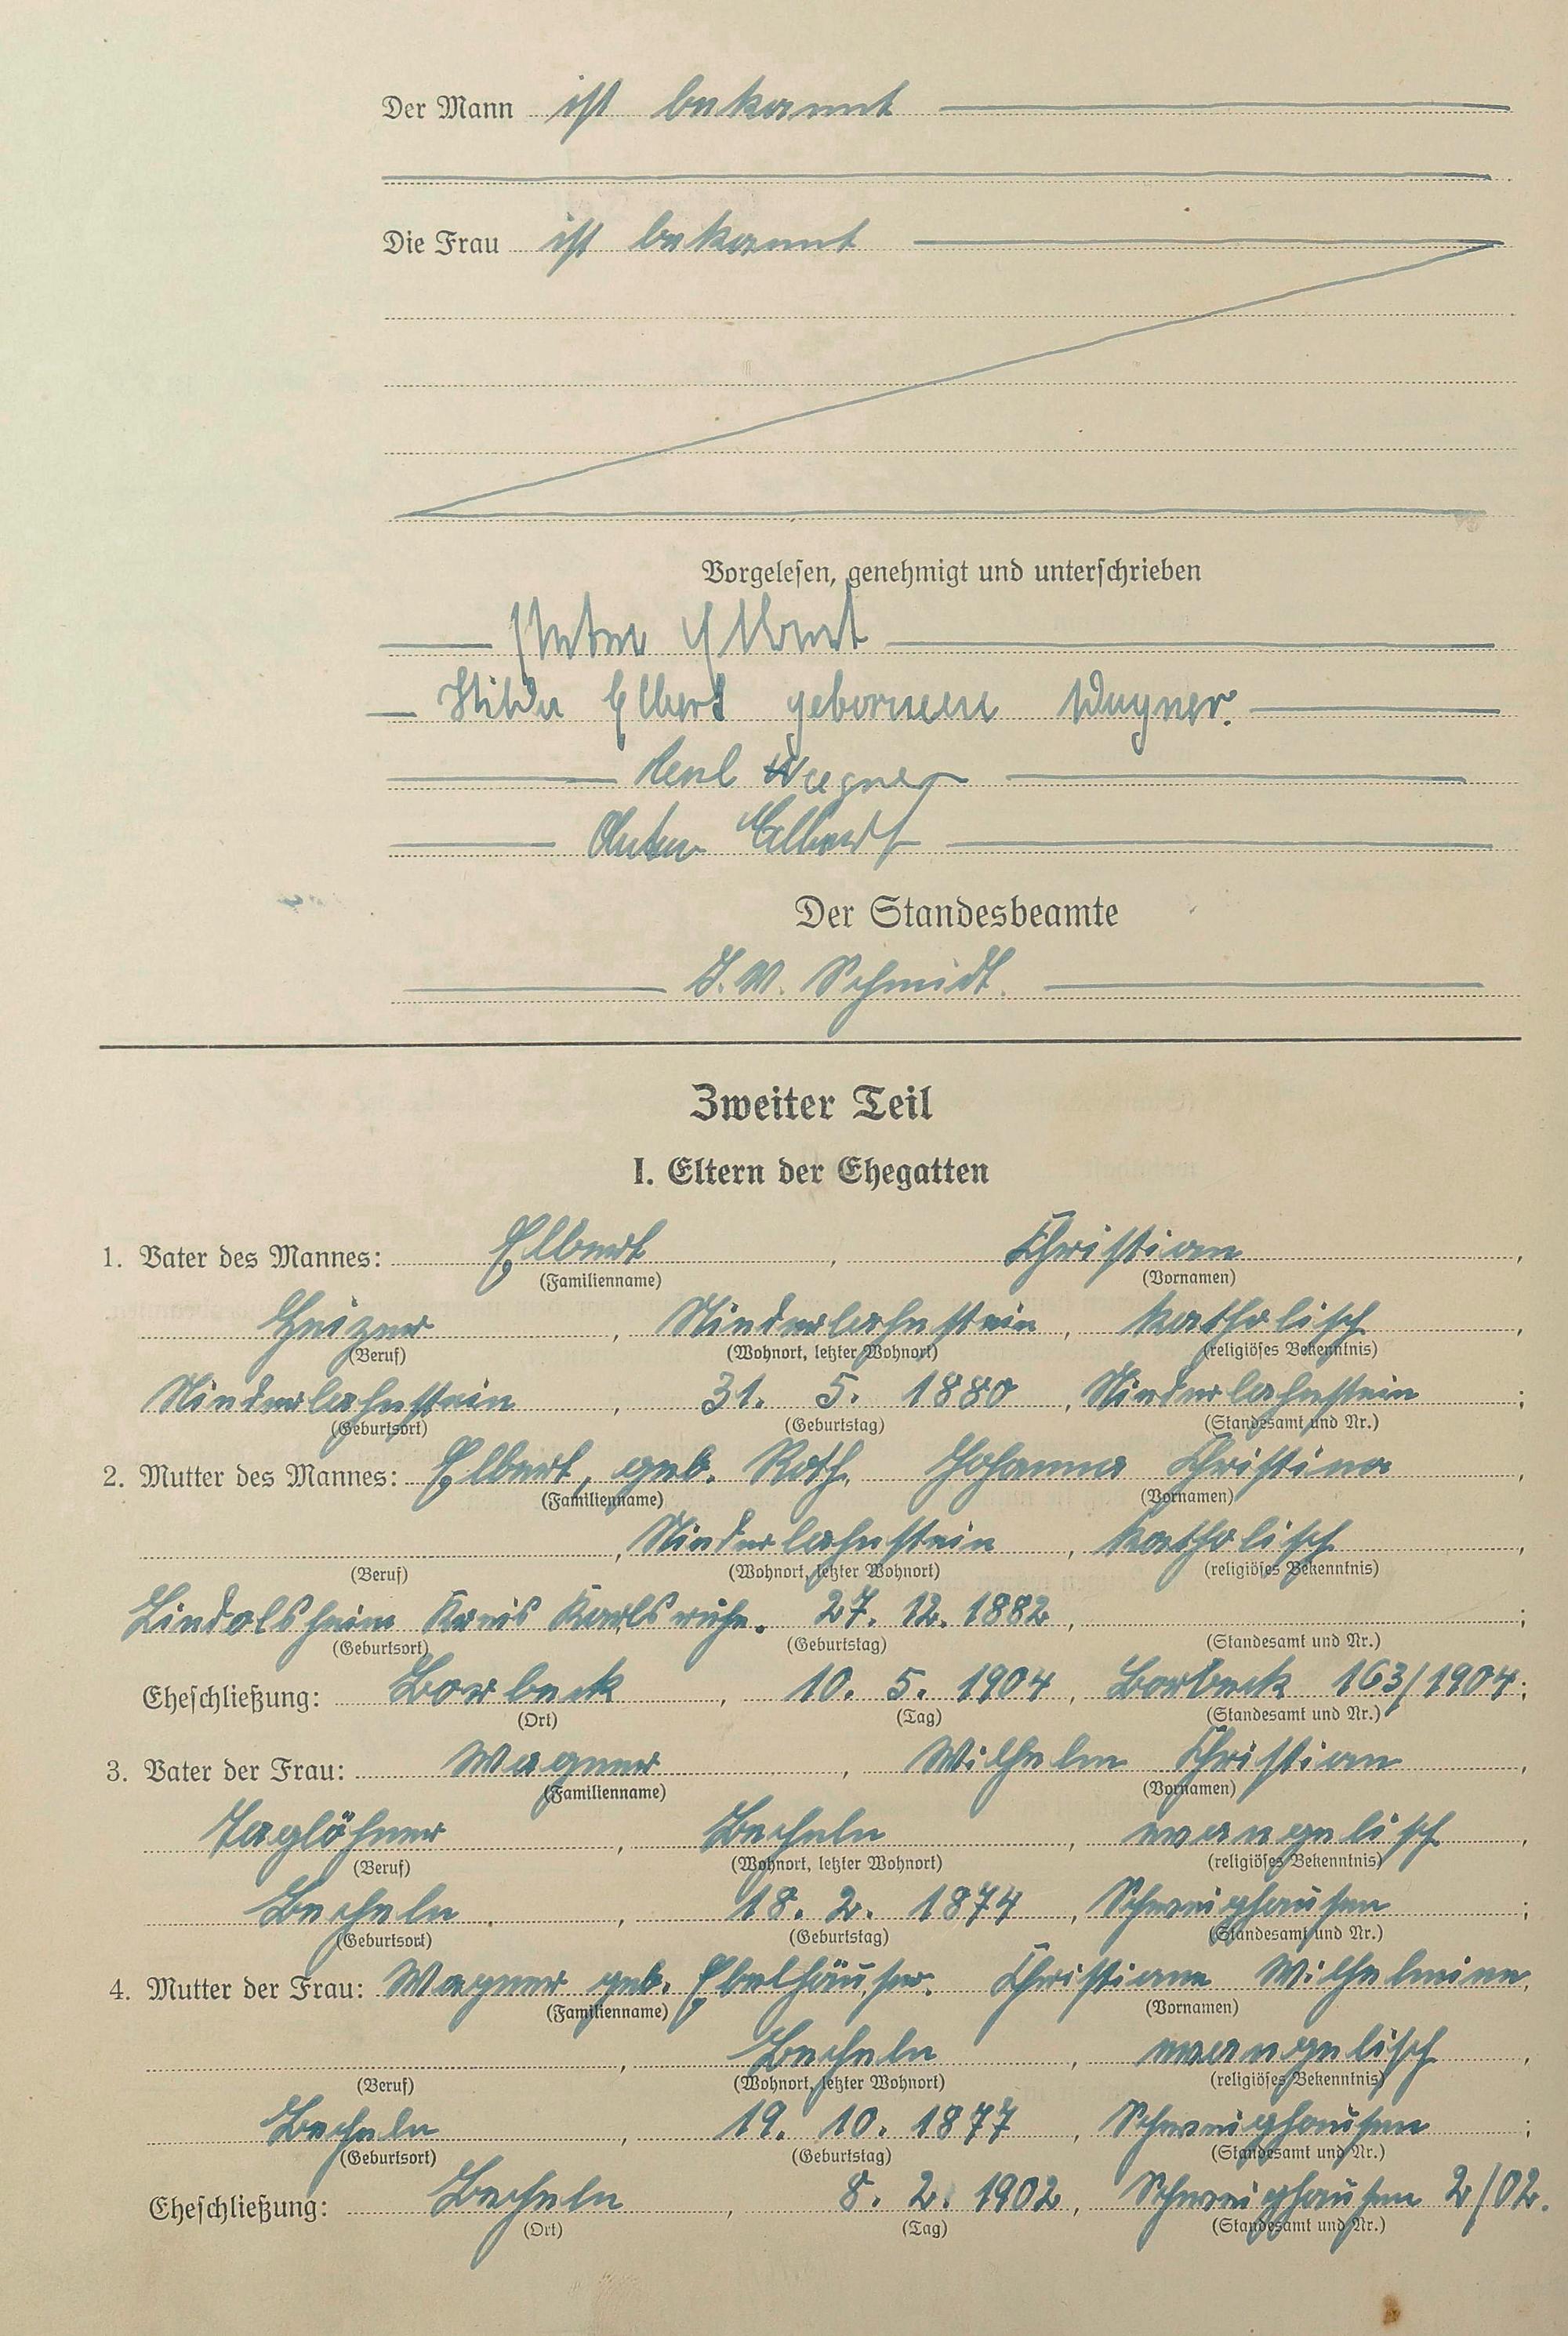 Der Mann ist bekannt
Die Frau ist bekannt
Vorgelesen, genehmigt und unterschrieben
Elbert
Hilda Elbert geborenen Wagner.
Karl Wagner
Anton Elbert
Der Standesbeamte
J. V. Schmidt.
Zweiter Teil
I. Eltern der Ehegatten
1. Vater des Mannes: Elbert, Christian,
(Familienname) (Vornamen)
Heizer, Niederlahnstein, katholisch,
(Beruf) (Wohnort, letzter Wohnort) (religiöses Bekenntnis)
Niederlahnstein, 31. 5. 1880, Niederlahnstein;
(Geburtsort) (Geburtstag) (Standesamt und Nr.)
2. Mutter des Mannes: Elbert, geb. Roth, Johanna Christina,
(Familienname) (Vornamen)
, Niederlahnstein, katholisch,
(Beruf) (Wohnort, letzter Wohnort) (religiöses Bekenntnis)
Liedolsheim Kreis Karlsruhe. 27. 12. 1882, ;
(Geburtsort) (Geburtstag) (Standesamt und Nr.)
Eheschließung: Borbeck, 10. 5. 1904, Borbeck 163/1904;
(Ort) (Tag) (Standesamt und Nr.)
3. Vater der Frau: Wagner, Wilhelm Christian,
(Familienname) (Vornamen)
Taglöhner, Becheln, evangelisch,
(Beruf) (Wohnort, letzter Wohnort) (religiöses Bekenntnis)
Becheln, 18. 2. 1874, Schweighausen;
(Geburtsort) (Geburtstag) (Standesamt und Nr.)
4. Mutter der Frau: Wagner geb. Ebelhäuser. Christiane Wilhelmine,
(Familienname) (Vornamen)
, Becheln, evangelisch,
(Beruf) (Wohnort, letzter Wohnort) (religiöses Bekenntnis)
Becheln, 19. 10. 1877, Schweighausen;
(Geburtsort) (Geburtstag) (Standesamt und Nr.)
Eheschließung: Becheln, 8. 2. 1902, Schweighausen 2/02.
(Ort) (Tag) (Standesamt und Nr.)